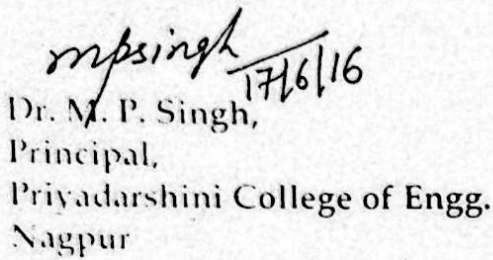 mpsingh
17/6/16
Dr. M. P. Singh,
Principal,
Priyadarshini College of Engg.
Nagpur